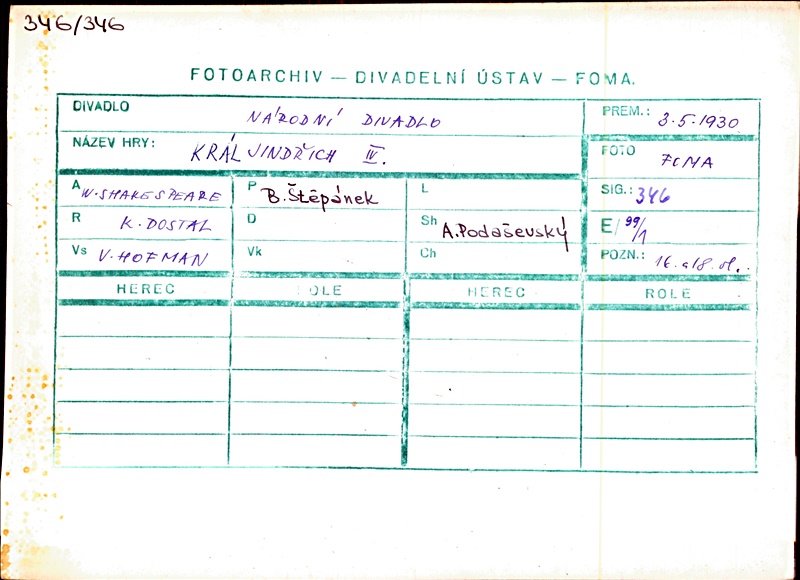 346/346
FOTOARCHIV — DIVADELNÍ ÚSTAV — FOMA.
DIVADLO NÁRODNÍ DIVADLO PREM.: 3.5.1930
NÁZEV HRY: KRÁL JINDŘICH IV. FOTO FOMA
A W. SHAKESPEARE P B. Štěpánek L SIG.: 346
R K. DOSTAL D Sh A. Podaševský E/ 99/1
Vs V. HOFMAN Vk Ch POZN.: 16. a 18. st.
HEREC ROLE HEREC ROLE